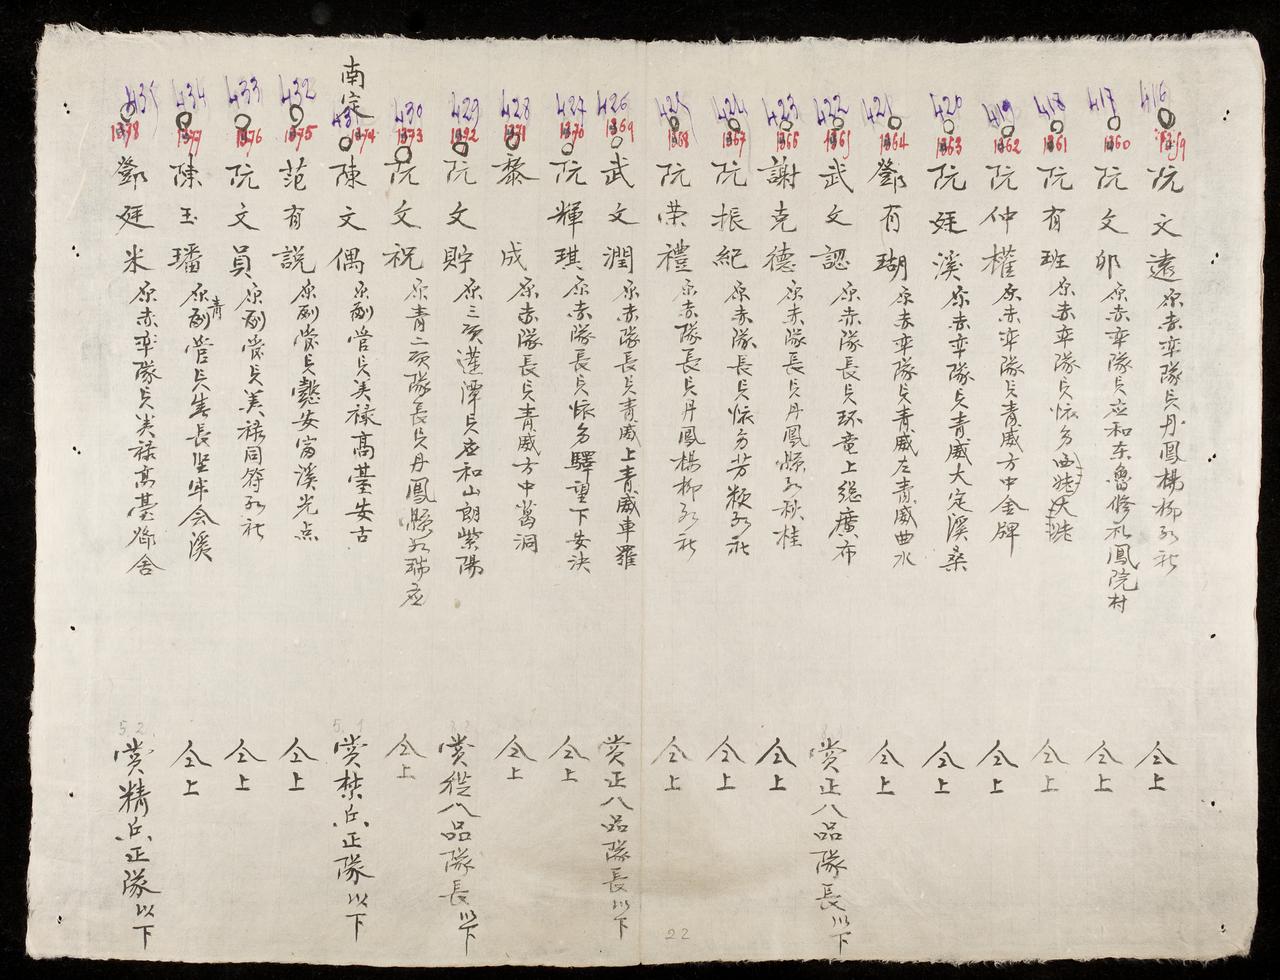 416
1359
阮文遠 原赤奕隊兵丹鳳楊柳於社
仝上
417
1360
阮文卯 原赤奕隊兵应和东魯修礼鳳院村
仝上
418
1361
阮有班 原赤奕隊兵怀安
仝上
419
1362
阮仲權 原赤奕隊兵青威方中金牌
仝上
420
1363
阮廷溪 原赤奕隊兵青威大定溪桑
仝上
421
1364
鄧有瑚 原赤奕隊兵青威左青威曲水
仝上
422
1365
武文認 原赤隊長兵环竜上総廣布
賞正八品隊長以下
423
1366
謝克德 原赤隊長兵丹鳳縣於秋桂
仝上
424
1367
阮振紀 原赤隊長兵怀安芳粳於社
仝上
425
1368
阮荣禮 原赤隊長兵丹鳳楊柳於社
仝上
426
1369
武文潤 原赤隊長兵青威上青威車羅
賞正八品隊長以下
427
1370
阮輝琪 原赤隊長兵怀安驛望下安决
仝上
428
1371
黎成 原赤隊長兵青威方中萬洞
仝上
429
1372
阮文貯 原三項運潭兵应和山朗紫陽
賞從八品隊長以下
430
1373
阮文祝 原青二項隊長兵丹鳳縣於瑞应
仝上
南定
431
1374
陳文偶 原副管兵美禄高臺安古
賞禁兵正隊以下
432
1375
范有説 原副管兵懿安富溪光点
仝上
433
1376
阮文員 原副管兵美禄同符於社
仝上
434
1377
陳玉璠 原青副管兵生長堅牢会溪
仝上
435
1378
鄧廷米 原赤奕隊兵美禄高臺鄉舍
賞精兵正隊以下
5.1
5.2
22